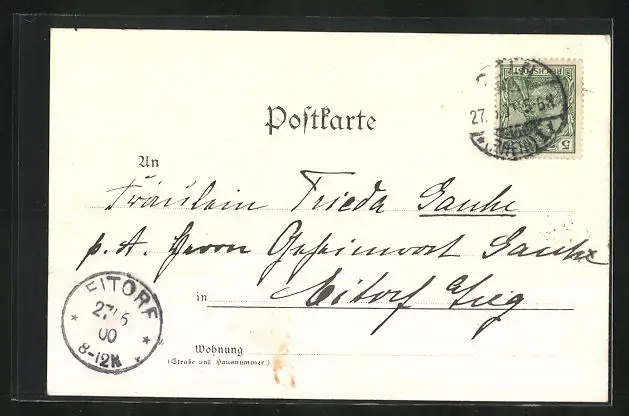 REICHSPOST
5
Postkarte
An
Fräulein Frieda Gauhe
p. A. Herrn Geheimrat Gauhe
in Eitorf Sieg
EITORF
27/5
00
8-12N
Wohnung
(Straße und Hausnummer.)